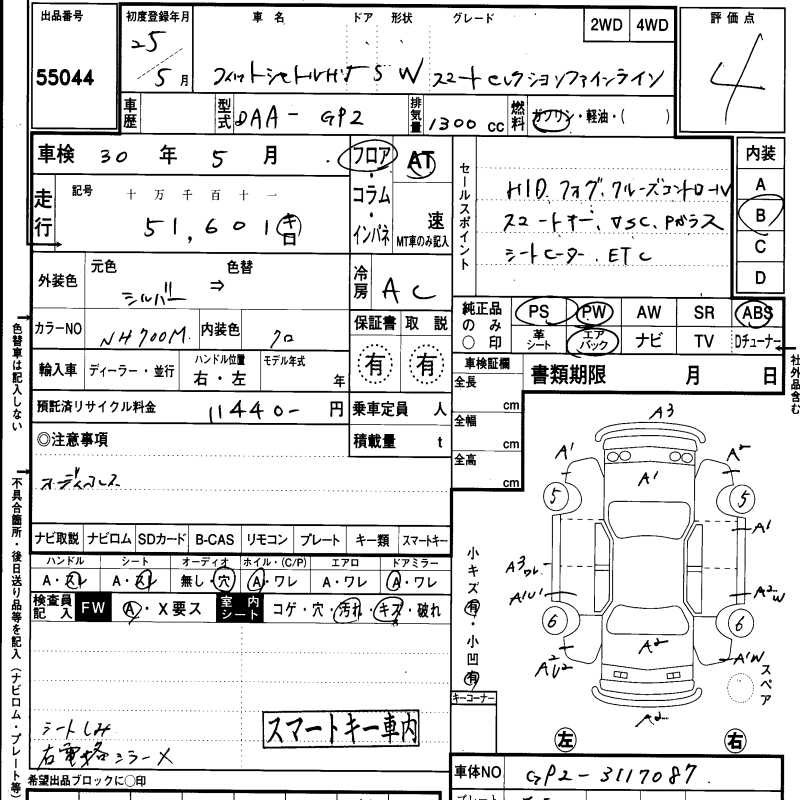 出品番号
55044
初度登録年月
25
5 月
車名 ドア 形状 グレード
2WD 4WD
フィットシャトルHV 5 W スマートセレクションファインライン
評価点
4
車歴
型式 DAA-GP2
排気量 1300 cc
燃料 ガソリン・軽油・( )
車検 30 年 5 月
フロア・コラム・インパネ
AT
速
MT車のみ記入
走行
記号 十 万 千 百 十 一
51,601 キロ
外装色
元色 色替
シルバー ⇒
冷房 AC
カラーNO NH700M 内装色 クロ
保証書 取説
有 有
輸入車 ディーラー・並行
ハンドル位置
右・左
モデル年式
年
預託済リサイクル料金 11440- 円
乗車定員 人
積載量 t
セールスポイント
HID、フォグ、クルーズコントロール
スマートキー、VSC、Pガラス
シートヒーター、ETC
内装
A
B
C
D
純正品のみ○印
PS PW AW SR ABS
革シート エアバック ナビ TV Dチューナー
車検証欄
全長 cm
全幅 cm
全高 cm
書類期限 月 日
色替車は記入しない
社外品含む
◎注意事項
オーディオレス
ナビ取説 ナビロム SDカード B-CAS リモコン プレート キー類 スマートキー
ハンドル シート オーディオ ホイル・(C/P) エアロ ドアミラー
A・スレ A・スレ 無し・穴 A・ワレ A・ワレ A・ワレ
検査員記入 FW A・X要ス 室内シート コゲ・穴・汚れ・キズ・破れ
不具合箇所・後日送り品等を記入(ナビロム・プレート等)
シートしみ
スマートキー車内
希望出品ブロックに○印
小キズ有・小凹有
キーコーナー
A3
A1 A2
A1
5 5
A1
A3ワレ
A1U1 A2W
6 6
A2
A2U2 A1W
A2
スペア
左 右
車体NO GP2-3117087